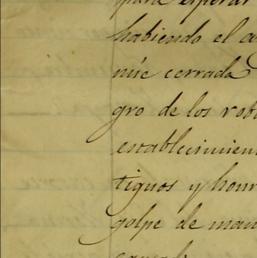 para esperar
habiendo el
me cerrada
gro de los rob
establecimien
tiguos y honr
golpe de man